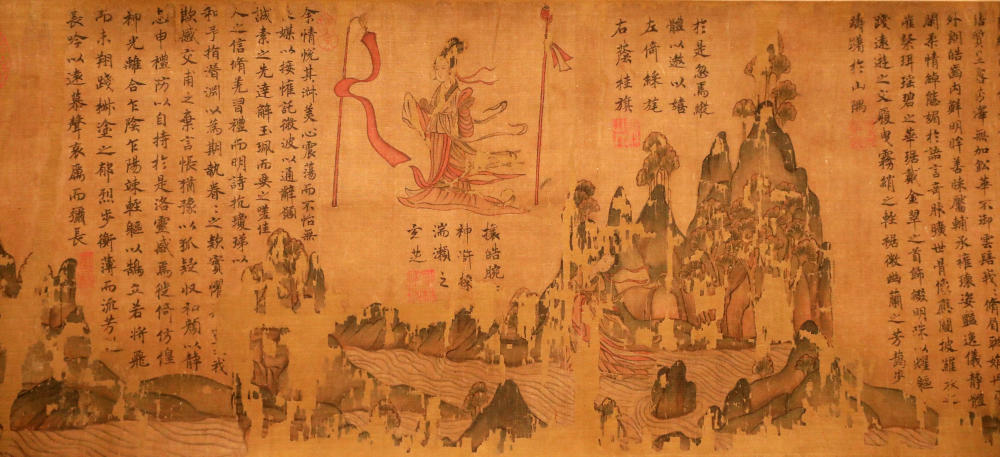 質呈露芳澤無加鉛華不御雲髻我脩眉聯娟
外朗皓齒內鮮明眸善睞靨輔承權瓌姿豔逸儀靜體
閑柔情綽態媚於語言奇服曠世骨像應圖披羅衣
璀粲珥瑤碧之華琚戴金翠之首飾綴明珠以耀軀
踐遠遊之文履曳霧綃之輕裾微幽蘭之芳藹步
於山隅
於是忽焉縱
體以遨以嬉
左倚綵旄
右蔭桂旗
攘皓腕
神滸採
湍瀨之
玄芝
余情悅其淑美心震蕩而不怡無
媒以接懽託微波以通辭願
誠素之先達解玉珮而要之嗟佳
人之信脩羌習禮而明詩抗瓊珶以
和予指潛淵以為期執眷〻之款實懼我
欺感交甫之棄言悵猶豫以狐疑收和顏以靜
志申禮防以自持於是洛靈感焉徙倚仿偟
神光離合乍陰乍陽竦輕軀以鶴立若將飛
而未翔踐椒塗之郁烈步衡薄而流芳
長吟以遠慕聲哀厲而彌長